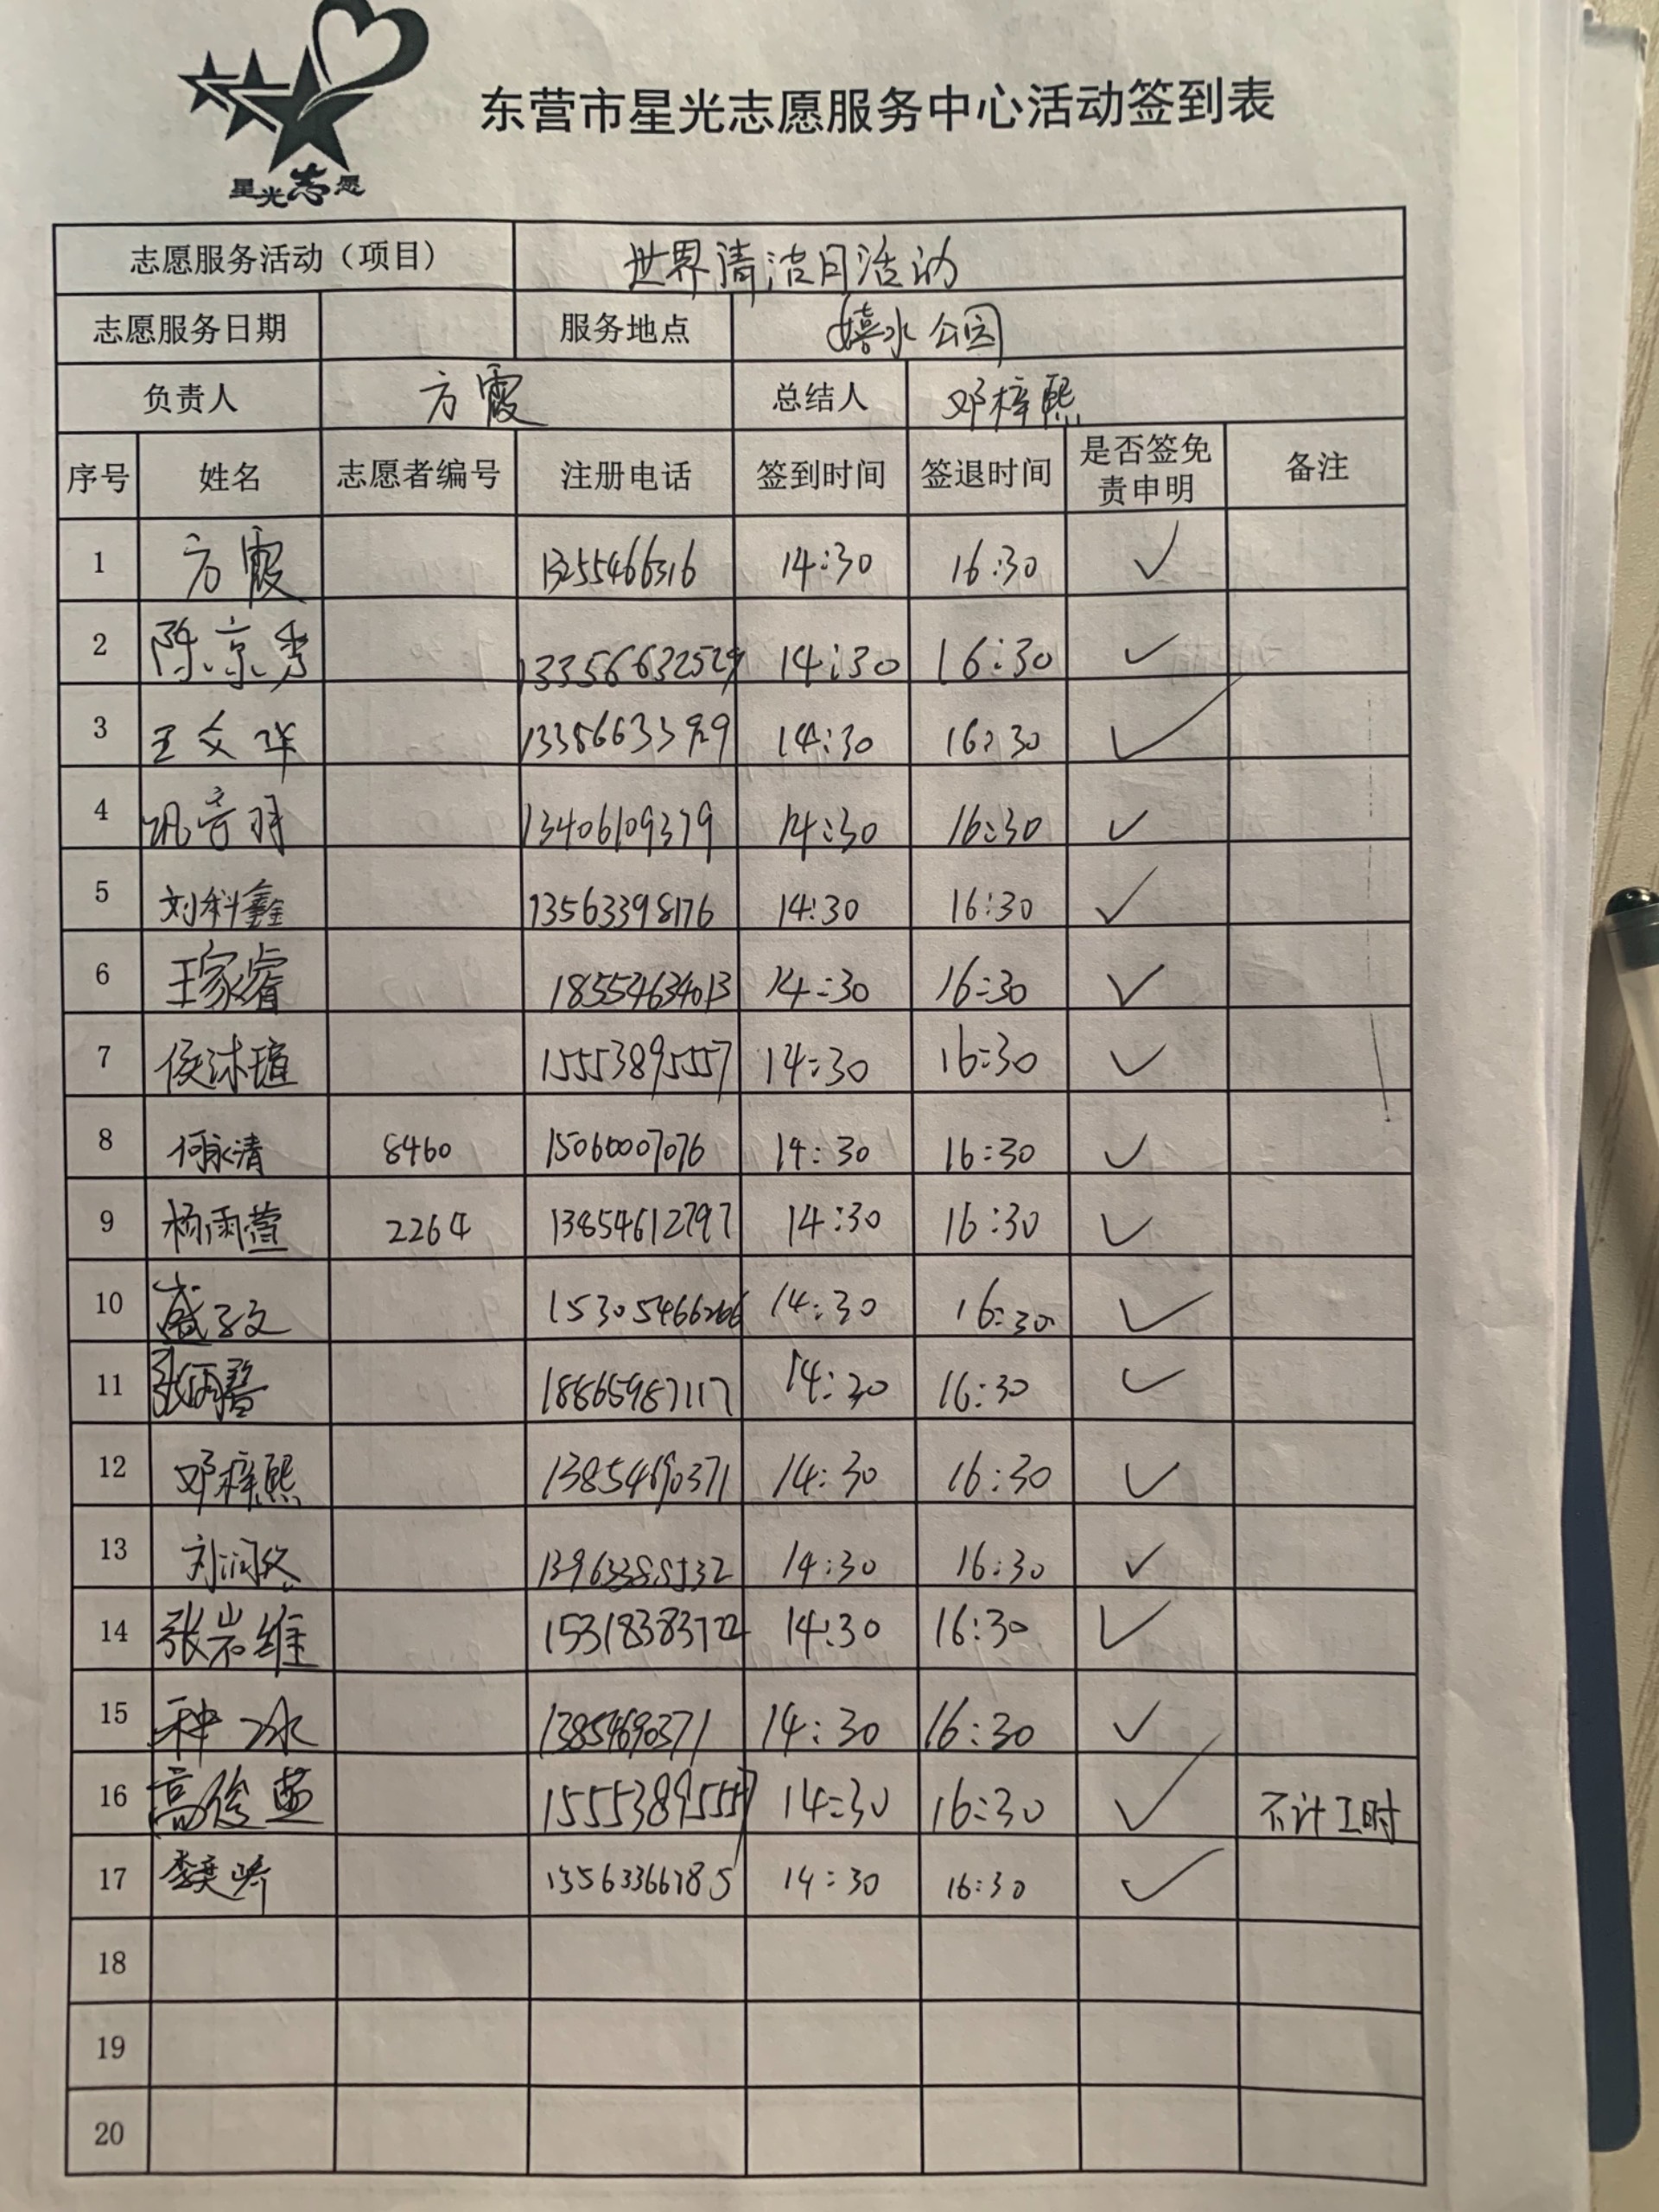 星光志愿
东营市星光志愿服务中心活动签到表
志愿服务活动（项目） 世界清洁日活动
志愿服务日期 服务地点 嬉水公园
负责人 方霞 总结人 邓梓熙
序号 姓名 志愿者编号 注册电话 签到时间 签退时间 是否签免责申明 备注
1 方霞 13255466316 14:30 16:30 ✓
2 陈京秀 13356632529 14:30 16:30 ✓
3 王文洋 14:30 16:30 ✓
4 13406109379 14:30 16:30 ✓
5 刘科鑫 13563398176 14:30 16:30 ✓
6 王家睿 18554634013 14:30 16:30 ✓
7 侯沐瑄 15553895557 14:30 16:30 ✓
8 何咏清 8460 15060007076 14:30 16:30 ✓
9 杨雨萱 2264 13854612797 14:30 16:30 ✓
10 15305466266 14:30 16:30 ✓
11 18865987117 14:30 16:30 ✓
12 邓梓熙 13854690371 14:30 16:30 ✓
13 14:30 16:30 ✓
14 张岩维 14:30 16:30 ✓
15 种冰 13854690371 14:30 16:30 ✓
16 15553895557 14:30 16:30 ✓ 不计工时
17 14:30 16:30 ✓
18
19
20